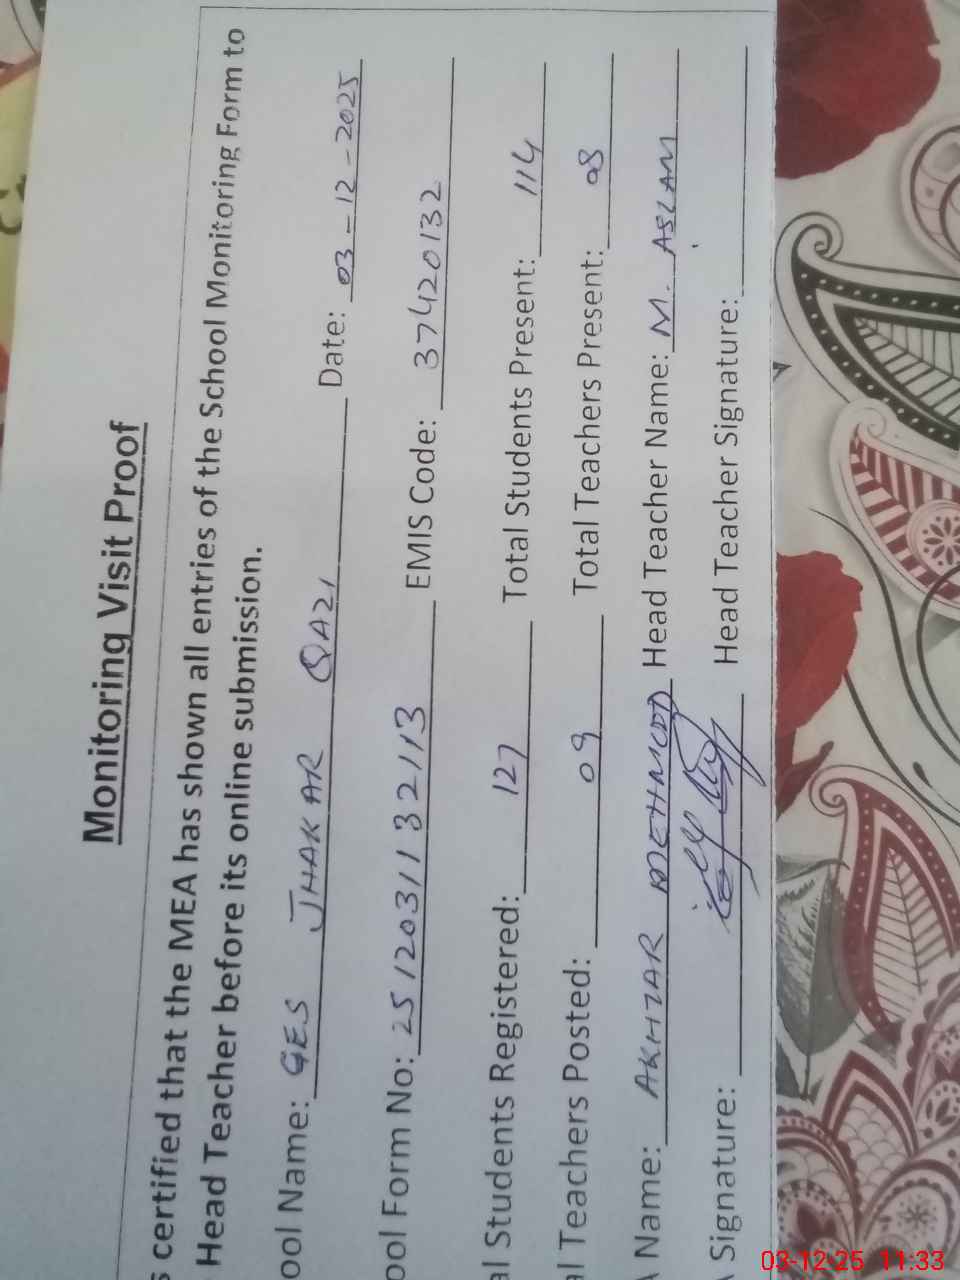 Monitoring Visit Proof
certified that the MEA has shown all entries of the School Monitoring Form to
Head Teacher before its online submission.
ool Name: GES JHAKAR QAZI Date: 03-12-2025
ool Form No: 25120311 32113 EMIS Code: 37420132
al Students Registered: 127 Total Students Present: 114
al Teachers Posted: 09 Total Teachers Present: 08
Name: AKHTAR MEHMOOD Head Teacher Name: M. ASLAM
Signature: Head Teacher Signature:
03-12-25 11:33